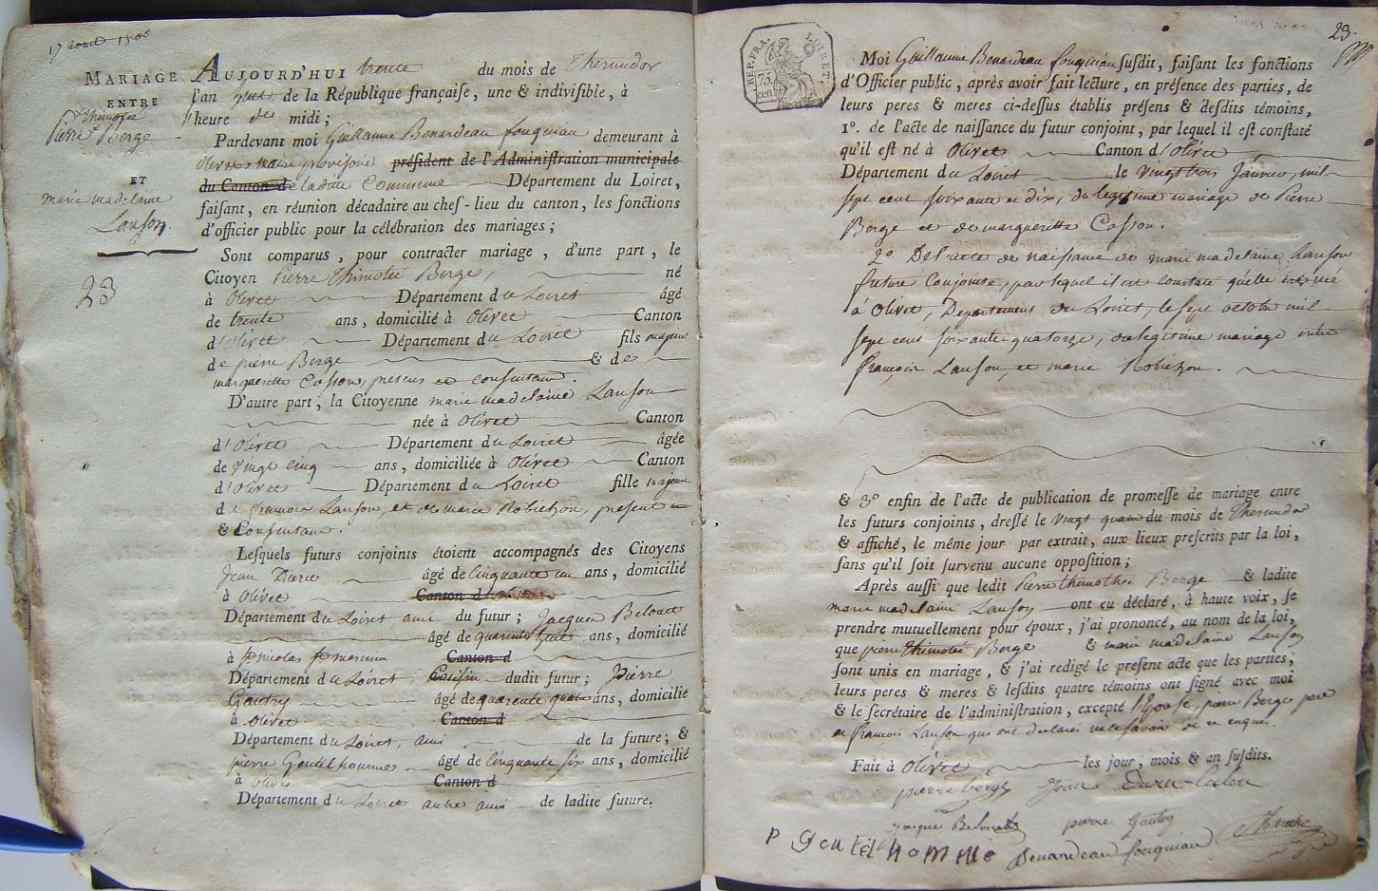 MARIAGE
ENTRE
Pierre thimotée
Berge
ET
marie madelaine
Lanson.
23
AUJOURD'HUI trente du mois de Thermidor
l'an huit de la République française, une & indivisible, à
heure de midi;
Pardevant moi Guillaume Benardeau fouquiau demeurant à
Olivet maire provisoire président de l'Administration municipale
du Canton de ladite Commune Département du Loiret,
faisant, en réunion décadaire au chef-lieu du canton, les fonctions
d'officier public pour la célébration des mariages;
Sont comparus, pour contracter mariage, d'une part, le
Citoyen Pierre Thimotée Berge, né
à Olivet Département du Loiret âgé
de trente ans, domicilié à Olivet Canton
d'Olivet Département du Loiret fils majeur
de pierre Berge & de
marguerette Cosson, presens et consentans.
D'autre part, la Citoyenne marie madelaine Lanson
née à Olivet Canton
d'Olivet Département du Loiret âgée
de Vingt cinq ans, domiciliée à Olivet Canton
d'Olivet Département du Loiret fille majeure
de francois Lanson, et de marie Robichon, present
& Consentans.
Lesquels futurs conjoints étoient accompagnés des Citoyens
Jean âgé de Cinquante un ans, domicilié
à Olivet Canton d'
Département du Loiret ami du futur; Jacques Belouet
âgé de quarente huit ans, domicilié
à St nicolas St mesmin Canton d
Département du Loiret, Cousin dudit futur; Pierre
Gautry âgé de quarente quatre ans, domicilié
à Olivet Canton d
Département du Loiret, ami de la future; &
pierre Gentilhomme âgé de Cinquante six ans, domicilié
à Olivet Canton d
Département du Loiret autre ami de ladite future.
REP. FRA. LOIRET.
75 cent.
23.
Moi Guillaume Benardeau fouquiau susdit, faisant les fonctions
d'Officier public, après avoir fait lecture, en présence des parties, de
leurs peres & meres ci-dessus établis présens & desdits témoins,
1º. de l'acte de naissance du futur conjoint, par lequel il est constaté
qu'il est né à Olivet Canton d'Olivet
Département du Loiret le Vingt trois Janvier, mil
sept cent soixante et dix, de legitime mariage de Pierre
Berge et de marguerette Cosson.
2º De l'acte de naissance de marie madelaine Lanson
future Conjointe, par lequel il est constaté qu'elle est née
à Olivet, Departement du Loiret, le sept octobre mil
sept cent soixante quatorze, de legitime mariage entre
françois Lanson, et marie Robichon.
& 3º enfin de l'acte de publication de promesse de mariage entre
les futurs conjoints, dressé le Vingt quatre du mois de Thermidor
& affiché, le même jour par extrait, aux lieux prescrits par la loi,
sans qu'il soit survenu aucune opposition;
Après aussi que ledit Pierre thimothée Berge & ladite
marie madelaine Lanson ont eu déclaré, à haute voix, se
prendre mutuellement pour époux, j'ai prononcé, au nom de la loi,
que pierre thimotée Berge & marie madelaine Lanson
sont unis en mariage, & j'ai redigé le present acte que les parties,
leurs peres & meres & lesdits quatre témoins ont signé avec moi
& le secrétaire de l'administration, excepté l'Epouse, pierre Berge pere
et francois Lanson qui ont declaré ne savoir de ce enquis.
Fait à Olivet les jour, mois & an susdits.
pierre berge Jean
jacque Belouet pierre Gautry
P gentilhomme Benardeau fouquiau